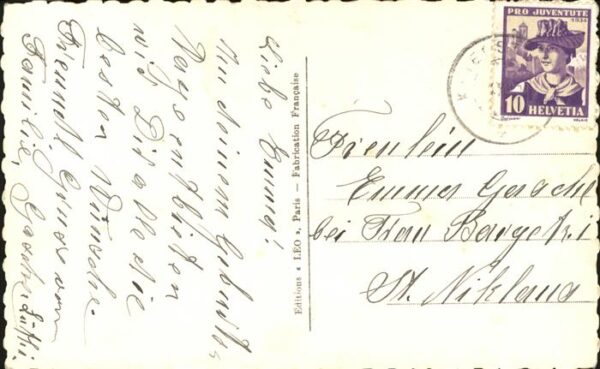 Liebe Emma!
An deinem Geburts
tage entbieten
wir Dir alle die
besten Wünsche.
Freundl. Grüsse von
Familie
Editions « LEO », Paris — Fabrication Française
PRO JUVENTUTE
1934
10 HELVETIA
Fräulein
Emma
bei Frau
St. Niklaus